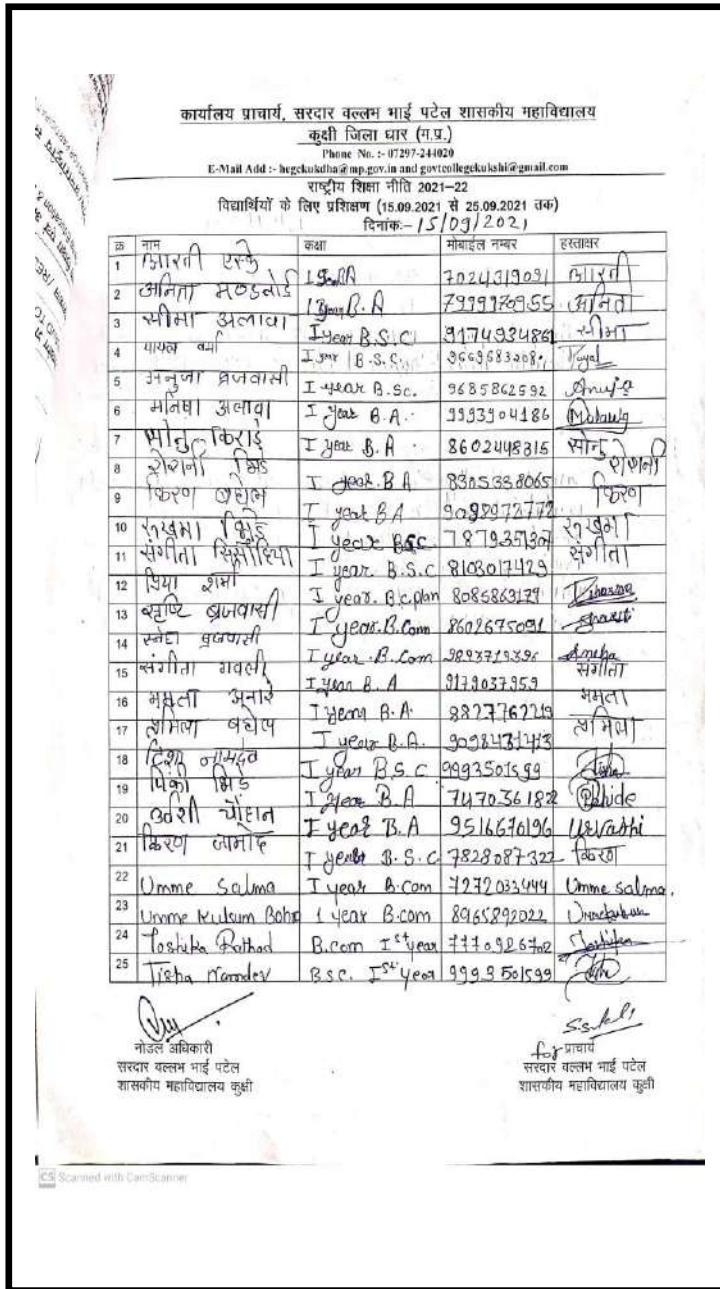 कार्यालय प्राचार्य, सरदार वल्लभ भाई पटेल शासकीय महाविद्यालय
कुक्षी जिला धार (म.प्र.)
Phone No. :- 07297-244020
E-Mail Add :- hegckukdha@mp.gov.in and govtcollegekukshi@gmail.com
राष्ट्रीय शिक्षा नीति 2021-22
विद्यार्थियों के लिए प्रशिक्षण (15.09.2021 से 25.09.2021 तक)
दिनांक:- 15/09/2021
क्र नाम कक्षा मोबाईल नम्बर हस्ताक्षर
1 आरती एस्के 7024319091 आरती
2 अनिता मण्डलोई I year B.A 7999970955 अनिता
3 सीमा अलावा I year B.S.C 9174934861 सीमा
4 पायल वर्मा I year B.S.C. Payal
5 अनुजा ब्रजवासी I year B.Sc. 9685862592 Anuja
6 मनिषा अलावा I year B.A. 9993904186
7 सोनु किराड़े I year B.A 8602448315 सोनु
8 रोशनी भिड़े I year. B A 8305338065 रोशनी
9 किरण बघेल I year B A 9098972772 किरण
10 रूखमा भिड़े I year BSC रूखमा
11 संगीता सिसोदिया I year B.S.C 8103017429 संगीता
12 प्रिया शर्मा I year. 8085863179
13 सृष्टि ब्रजवासी I year.B.Com 8602675091
14 स्नेहा ब्रजवासी I year.B.Com 9893719396 Sneha
15 संगीता गवली I year B.A 9179037959 संगीता
16 ममता अनारे I year B.A. 8827762219 ममता
17 बघेल I year B.A. 9098431413
18 टिशा नामदेव I year B.S.C 9993501599
19 पिंकी भिड़े I year B.A 7470561822
20 उर्वशी चौहान I year B.A 9516670196 Urvashi
21 किरण जामोद I year B.S.C 7828087322 किरण
22 Umme Salma I year B.com 7272033444 Umme salma.
23 Umme Kulsum Bohra 1 year B.com 8965892022
24 Toshika Rathod B.com Ist year 7770926702
25 Tisha Namdev B.SC. Ist year 9993501599
नोडल अधिकारी
सरदार वल्लभ भाई पटेल
शासकीय महाविद्यालय कुक्षी
for प्राचार्य
सरदार वल्लभ भाई पटेल
शासकीय महाविद्यालय कुक्षी
CS Scanned with CamScanner